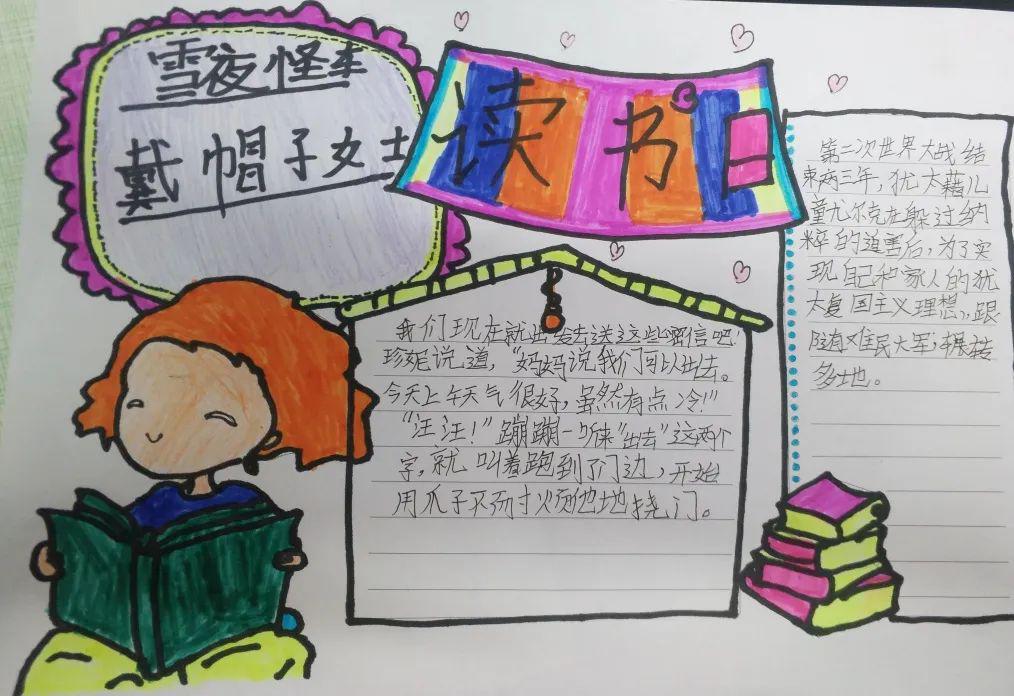 雪夜怪车
戴帽子女士
读书日
我们现在就出发去送这些密信吧!
珍妮说道,“妈妈说我们可以出去。
今天上午天气很好,虽然有点冷!”
“汪汪!”蹦蹦一听“出去”这两个
字,就叫着跑到了门边,开始
用爪子不耐烦地挠门。
第二次世界大战结
束两三年,犹太藉儿
童尤尔克在躲过纳
粹的迫害后,为了实
现自己和家人的犹
太复国主义理想,跟
随难民大军,辗转
多地。